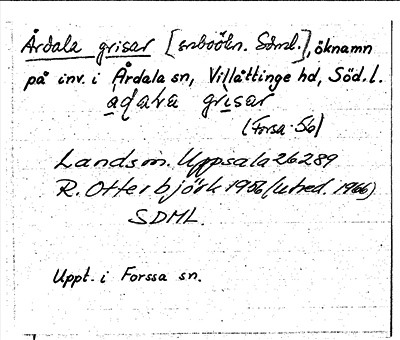 Årdala grisar [snboökn. Södml.], öknamn
på inv. i Årdala sn, Villåttinge hd, Söd.l.
grisar
(Forsa. 56)
Landsm. Uppsala 26289
R. Otterbjörk 1956 (utred. 1966)
SDML.
Uppt. i Forssa sn.